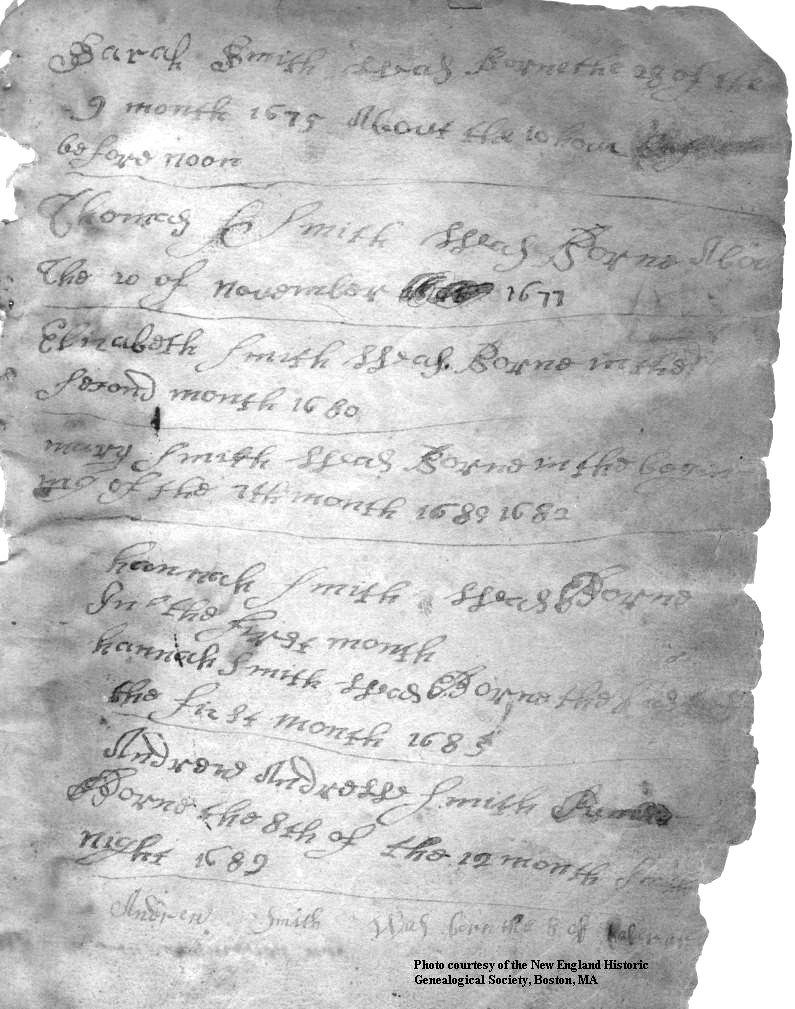 Sarah Smith Was Borne the 28 of the
9 month 1675 About the 10 hour
before noon
Thomas Smith Was Borne Abou
The 20 of november 1677
Elizabeth Smith Was Borne in the
second month 1680
mary Smith Was Borne in the begin
ing of the 7th month 1689 1682
hannah Smith Was Borne
In the first month
hannah Smith Was Borne the
the first month 1685
Andrew Andrew Smith
Borne the 8th of the 12 month
night 1689
Andrew Smith Was born the 8 of
Photo courtesy of the New England Historic
Genealogical Society, Boston, MA